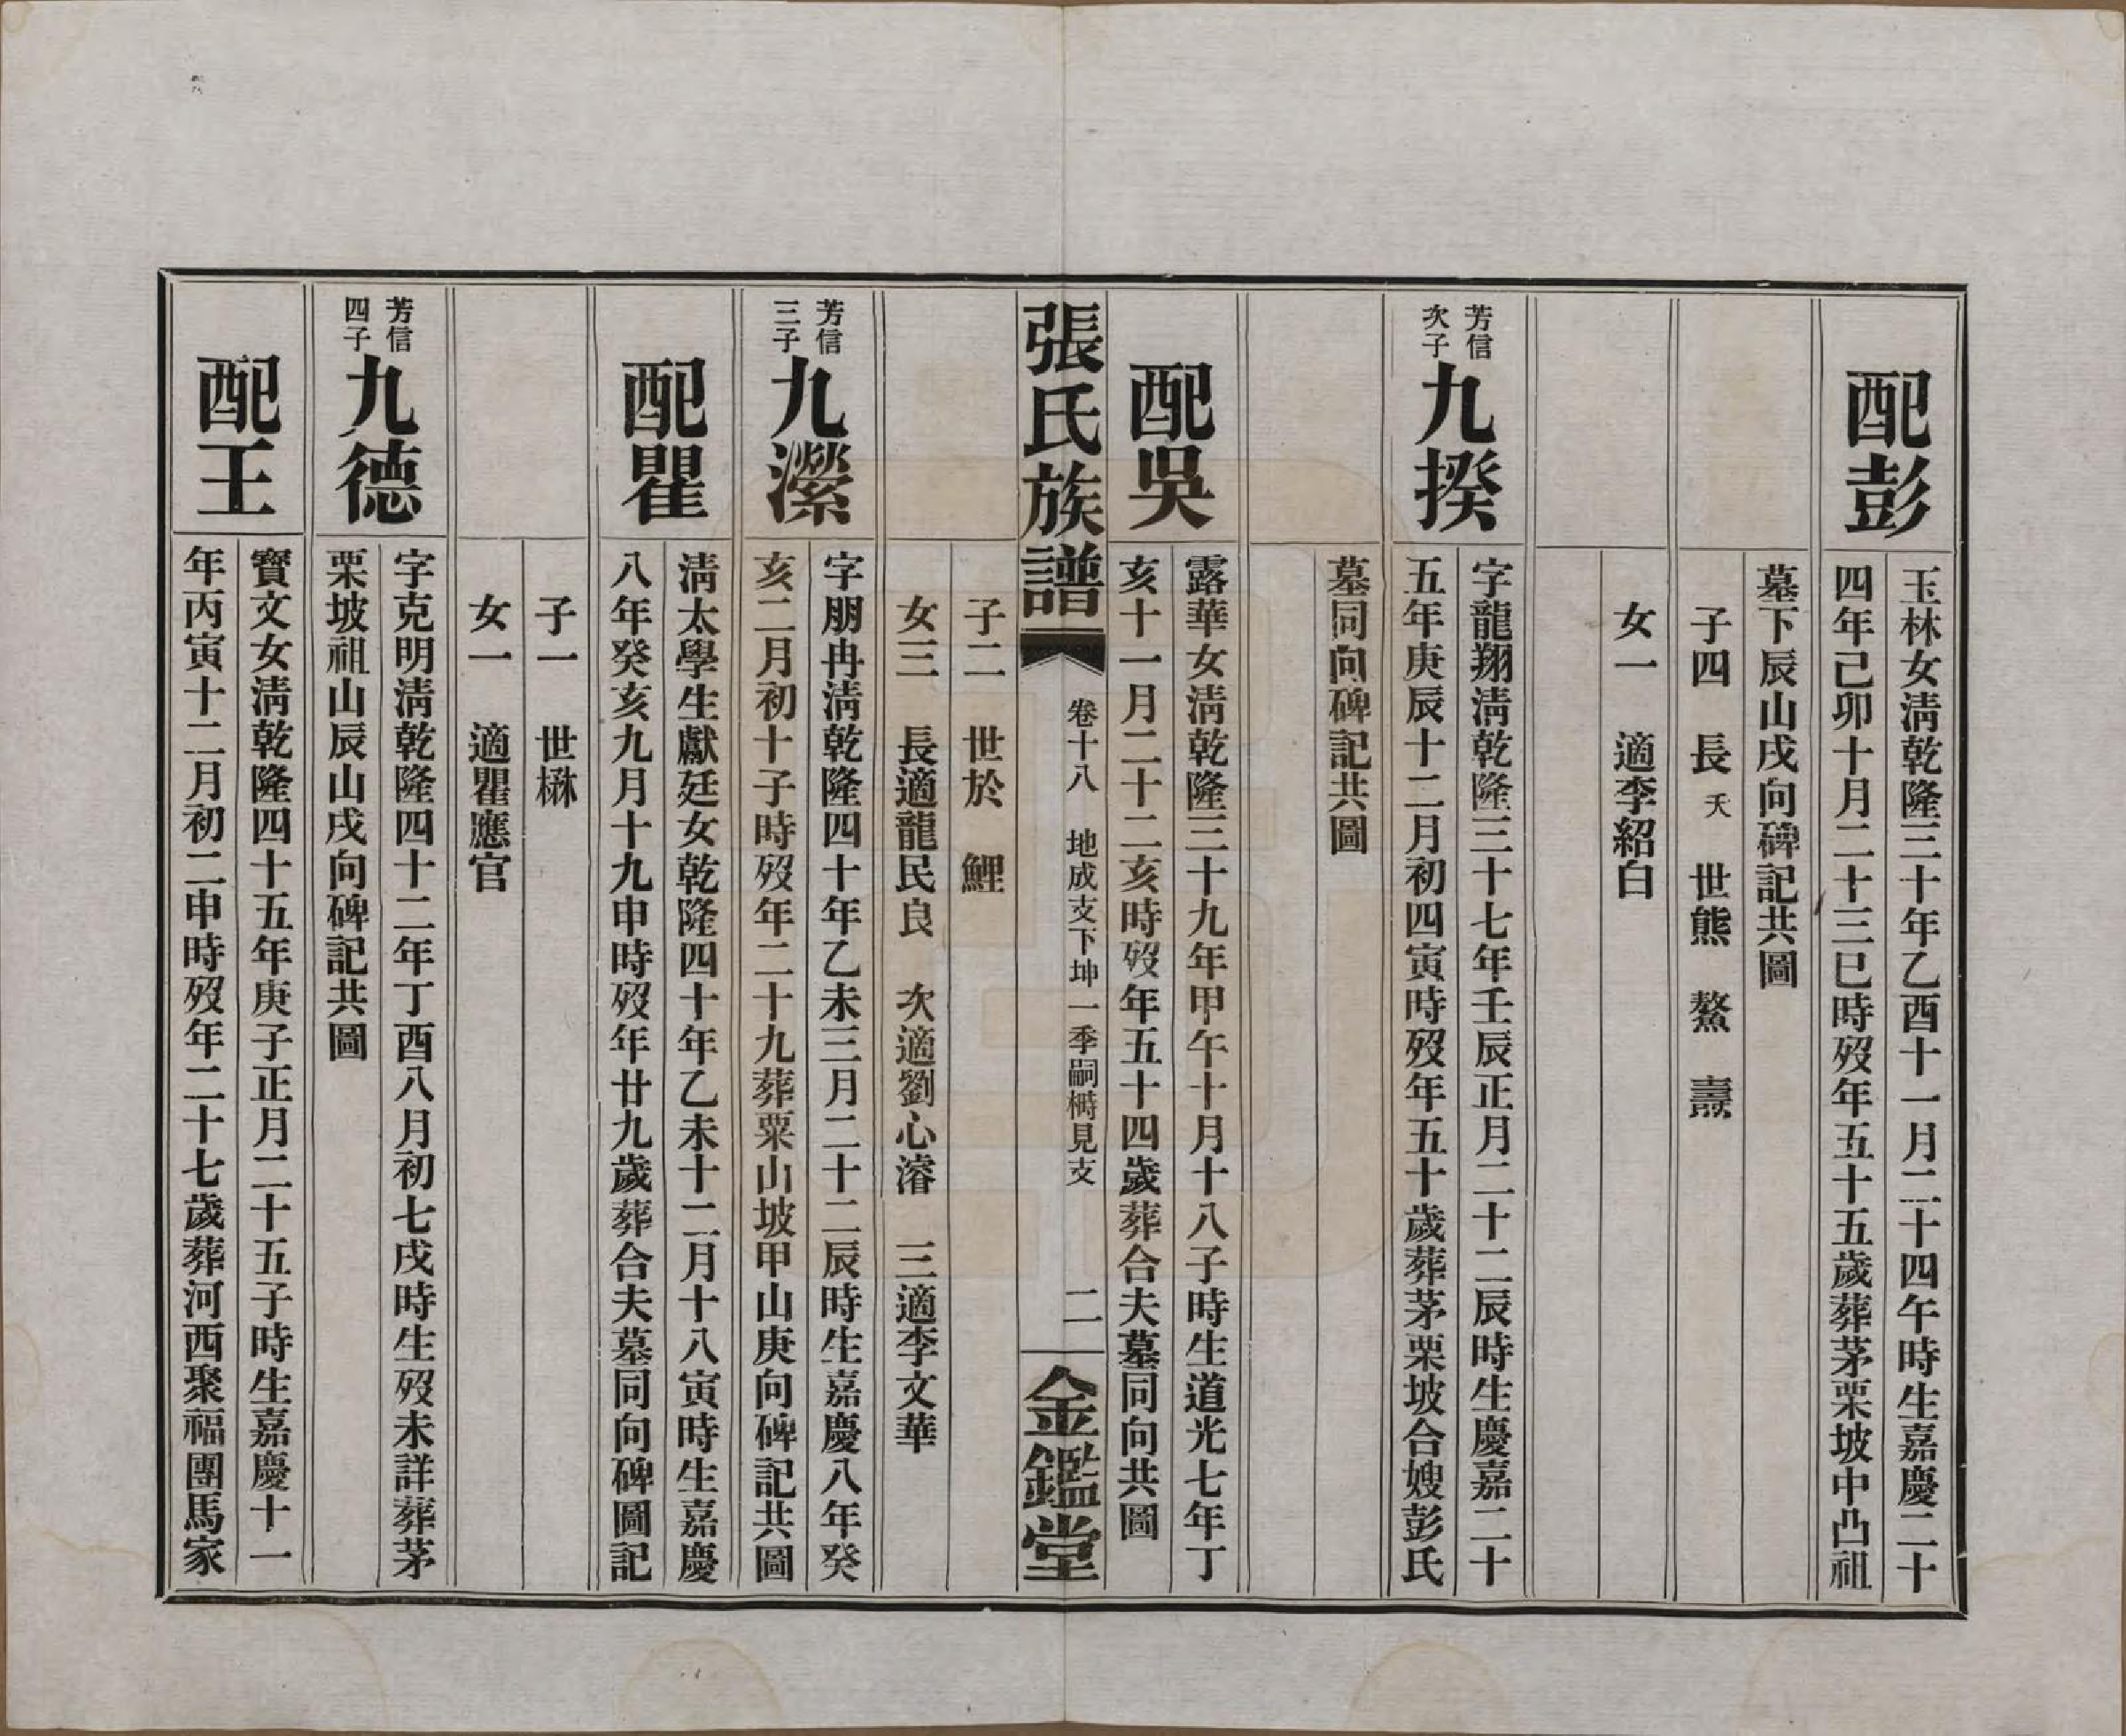 配彭
玉林女淸乾隆三十年乙酉十一月二十四午時生嘉慶二十
四年己卯十月二十三巳時歿年五十五歲葬茅栗坡中凸祖
墓下辰山戌向碑記共圖
子四　長夭　世熊　鰲　燾
女一　適李紹白
芳信
次子
九揆
字龍翔淸乾隆三十七年壬辰正月二十二辰時生慶嘉二十
五年庚辰十二月初四寅時歿年五十歲葬茅栗坡合嫂彭氏
墓同向碑記共圖
配吳
露華女淸乾隆三十九年甲午十月十八子時生道光七年丁
亥十一月二十二亥時歿年五十四歲葬合夫墓同向共圖
張氏族譜
卷十八　地成支下坤一季嗣榯見支
二
金鑑堂
子二　世於　鯉
女三　長適龍民良　次適劉心濬　三適李文華
芳信
三子
九瀠
字朋冉淸乾隆四十年乙未三月二十二辰時生嘉慶八年癸
亥二月初十子時歿年二十九葬栗山坡甲山庚向碑記共圖
配瞿
淸太學生獻廷女乾隆四十年乙未十二月十八寅時生嘉慶
八年癸亥九月十九申時歿年廿九歲葬合夫墓同向碑圖記
子一　世楙
女一　適瞿應官
芳信
四子
九德
字克明淸乾隆四十二年丁酉八月初七戌時生歿未詳葬茅
栗坡祖山辰山戌向碑記共圖
配王
寶文女淸乾隆四十五年庚子正月二十五子時生嘉慶十一
年丙寅十二月初二申時歿年二十七歲葬河西聚福團馬家